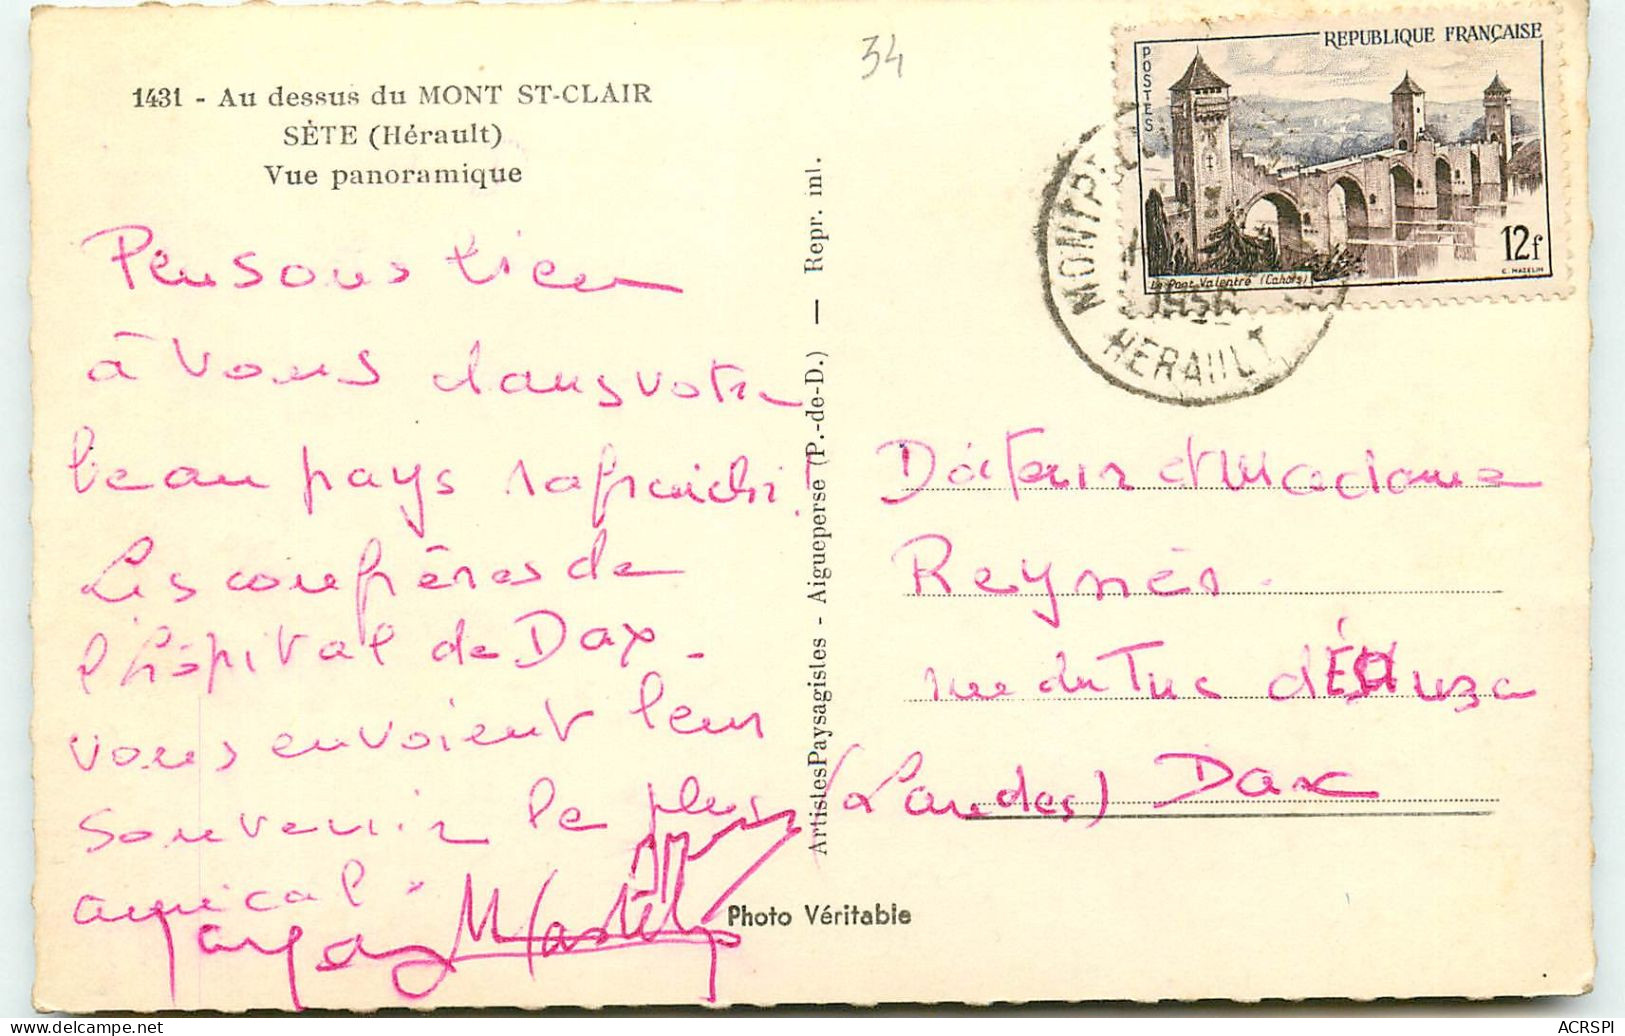 34
1431 - Au dessus du MONT ST-CLAIR
SÈTE (Hérault)
Vue panoramique
Pensons bien
à vous dans votre
beau pays rafraichi!
Les confrères de
l'hôpital de Dax
vous envoient leur
souvenir le plus
amical.
ArtistesPaysagistes - Aigueperse (P.-de-D.) — Repr. inl.
Photo Véritable
REPUBLIQUE FRANÇAISE
POSTES
12f
C. MAZELIN
Le Pont Valentré (Cahors)
1956
HERAULT
Docteur et Madame
Reynès.
rue du Tuc d'Éauza
(Landes) Dax
ACRSPI